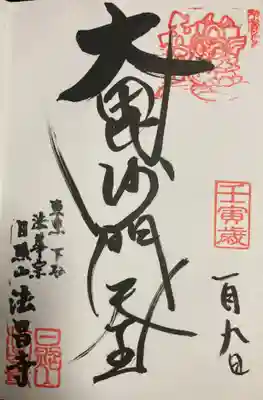 壬寅歳
一月九日
大毘沙門天王
東京 下谷
法華宗
日照山 法昌寺